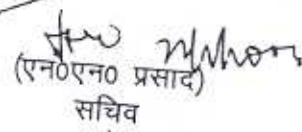 (एन0एन0 प्रसाद)
सचिव